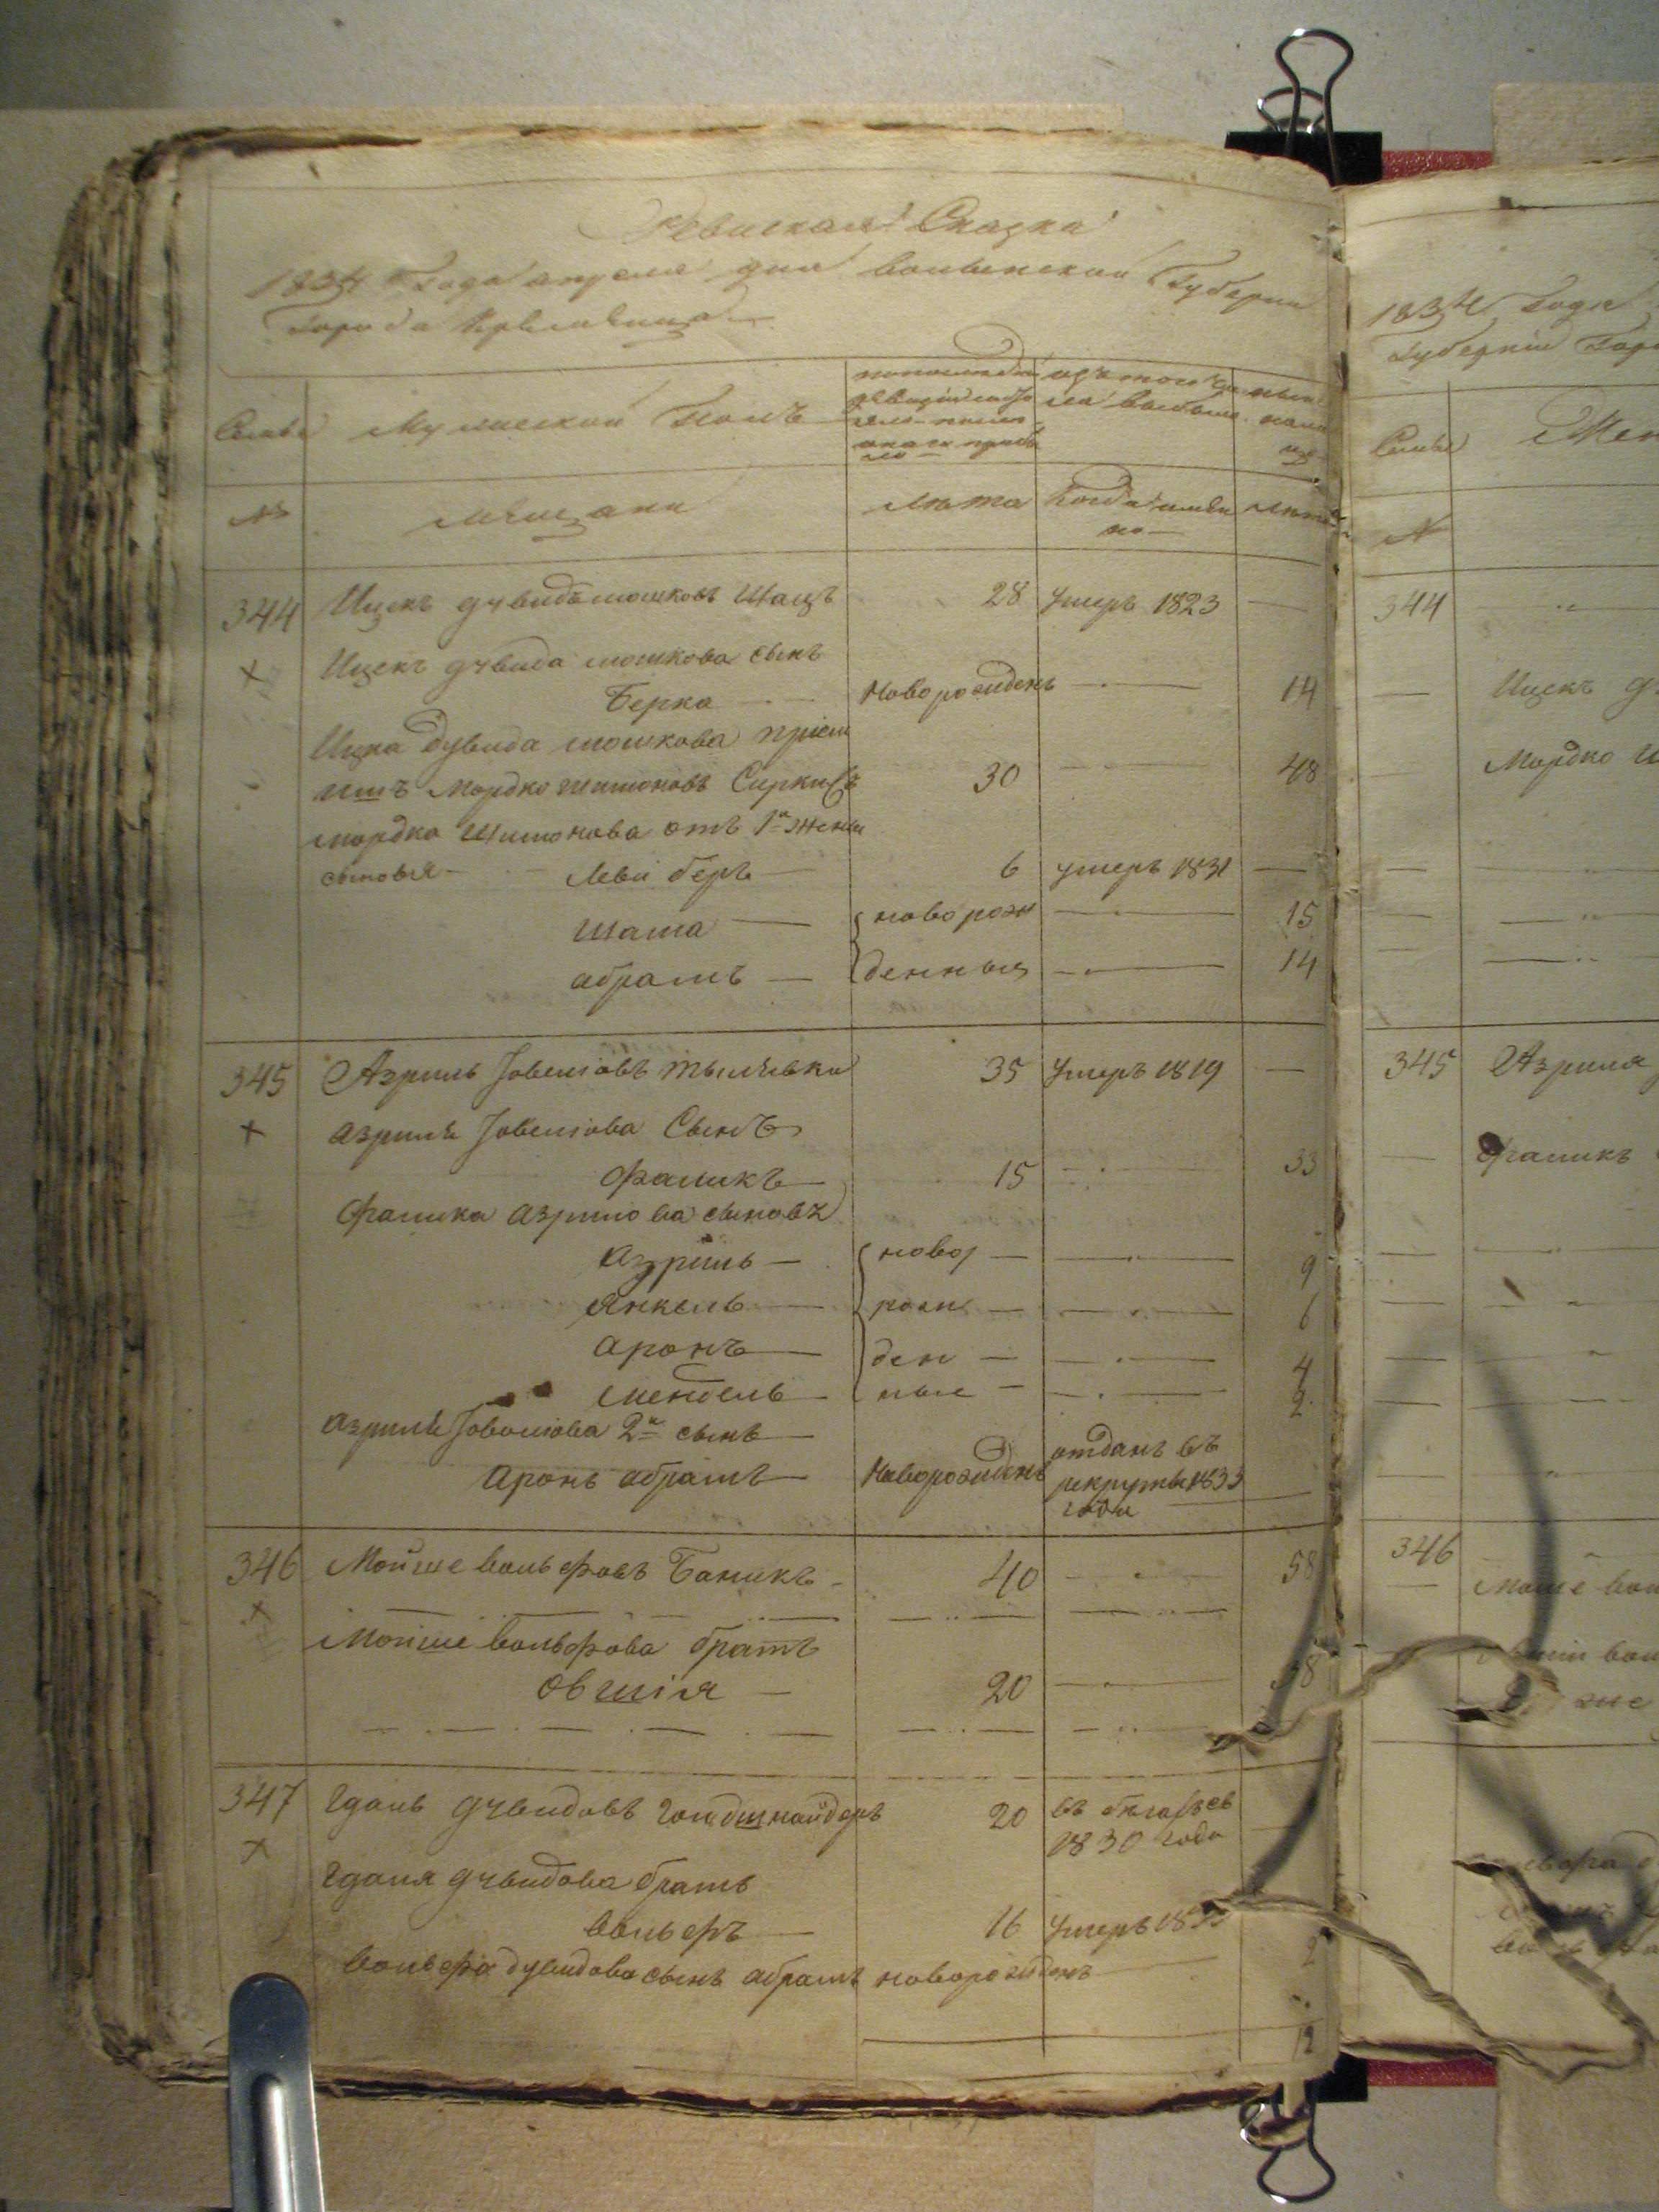 Ревизская Сказка
1834 года апреля дня волынской Губернии
Города Кременца
Семьи Мужеской Полъ
изъ того числа выбыло
№ мещане лета Когда имянно лета
344 Ицекъ дувидъ мошковъ Шацъ 28 умеръ 1823 —
Ицекъ дувида мошкова сынъ
Берко Новорожденъ — 14
Ицка Дувида мошкова пріем
ышъ Мордко шимоновъ Сиркисъ 30 — 48
мордка Шимонова отъ 1й жены
сыновья Леви беръ 6 умеръ 1831 —
Шама — новорож — 15
абрамъ — денныя — 14
345 Азриль Іовеліовъ 35 умеръ 1819 —
азриля Іовеліова Сынъ
Фаликъ 15 — 33
Фалика азрилова сыновъя
Азриль — новор — 9
Янкель — рож — 6
аронъ — ден — 4
мендель — ные — 2
азриля Іовеліова 2й сынъ
аронъ абрамъ — Новорожденъ отданъ въ
рекруты 1833
года
346 Мойше вольфовъ Баникъ 40 — 58
Мойше вольфова братъ
Овшія — 20 — 38
347 Гдаль дувидовъ Гольдшнайдеръ 20 въ бегахъ съ
1830 года
Гдаля дувидова братъ
вольфъ — 16 умеръ
вольфа дувидова сынъ абрамъ новорожденъ — 2
12
1834 Года
Губерніи
Семьи
№
344
Ицекъ
Мордко
345 Азриля
Фаликъ
346